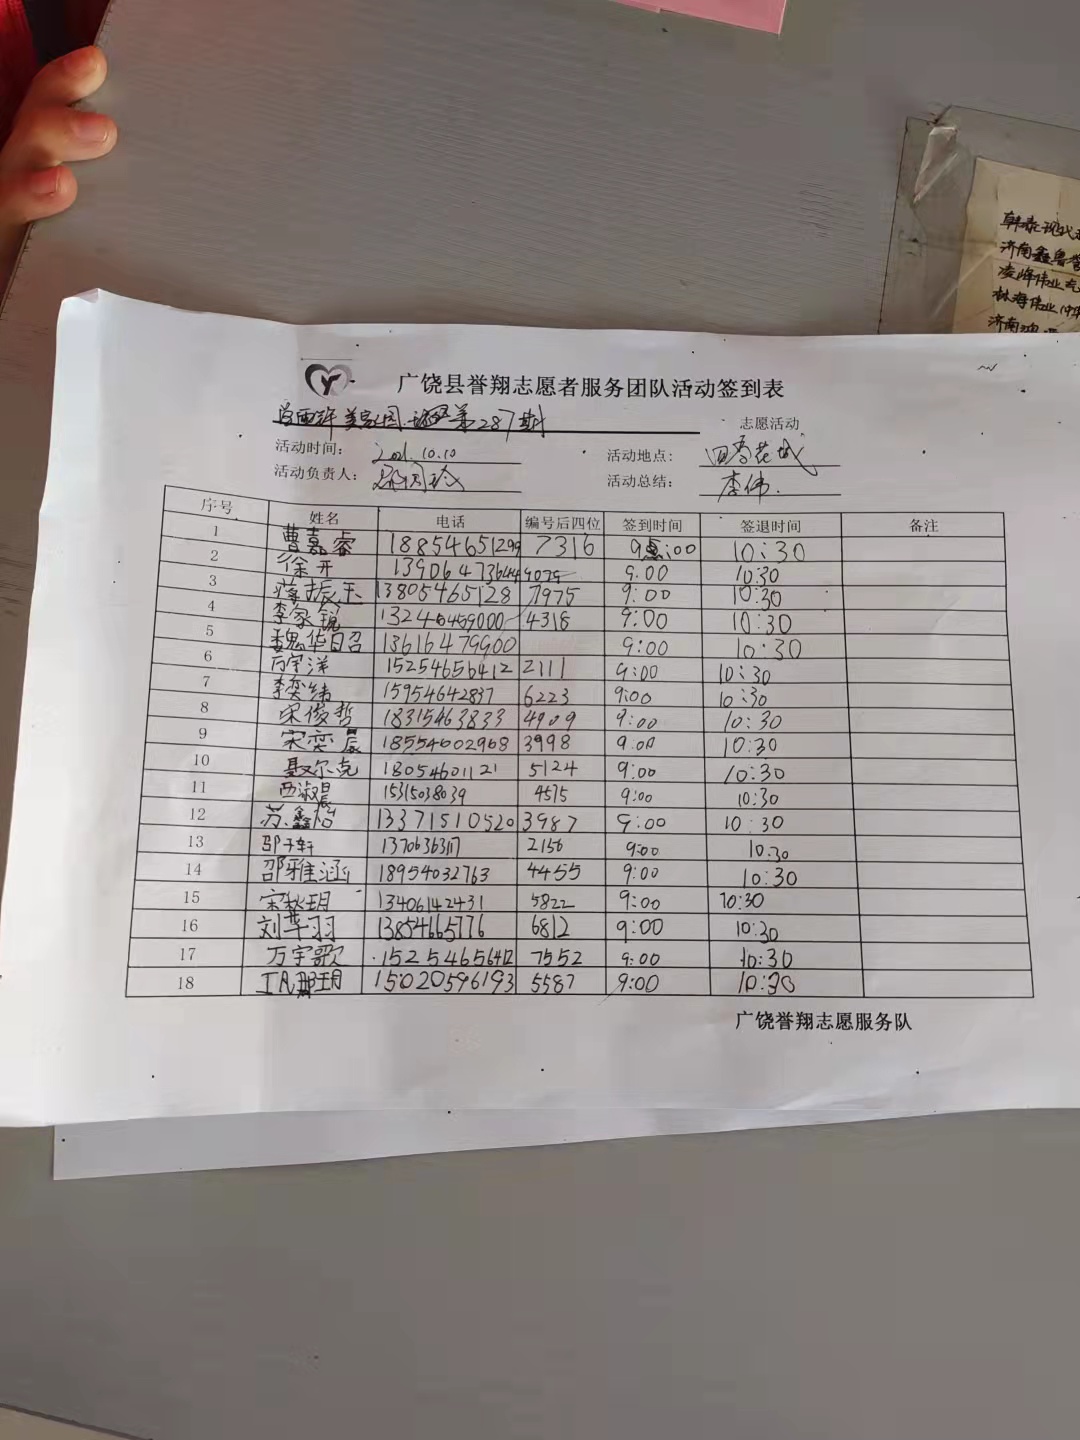 韩泰现代
济南鑫鲁
凌峰伟业
林海伟业
济南
广饶县誉翔志愿者服务团队活动签到表
第287期 志愿活动
活动时间: 2021.10.10 活动地点: 四季花城
活动负责人: 活动总结: 李伟.
序号 姓名 电话 编号后四位 签到时间 签退时间 备注
1 曹嘉睿 18854651299 7316 9:00 10:30
2 徐开 13906473644 9:00 10:30
3 蒋振玉 13805465128 7975 9:00 10:30
4 李家锐 13246459000 4318 9:00 10:30
5 魏华昭 13616479900 9:00 10:30
6 万宇洋 15254656412 2111 9:00 10:30
7 李奕纬 15954642837 6223 9:00 10:30
8 宋俊哲 18315463833 4909 9:00 10:30
9 宋奕晨 18554602968 3998 9:00 10:30
10 聂尔克 18054601121 5124 9:00 10:30
11 西淑晨 15315038039 4575 9:00 10:30
12 苏鑫怡 13371510520 3987 9:00 10:30
13 邹子轩 13706363117 2156 9:00 10:30
14 邵雅涵 18954032763 4455 9:00 10:30
15 宋秋玥 13406142431 5822 9:00 10:30
16 刘华羽 13854665776 6812 9:00 10:30
17 万宇歌 15254656412 7552 9:00 10:30
18 15020596193 5587 9:00 10:30
广饶誉翔志愿服务队